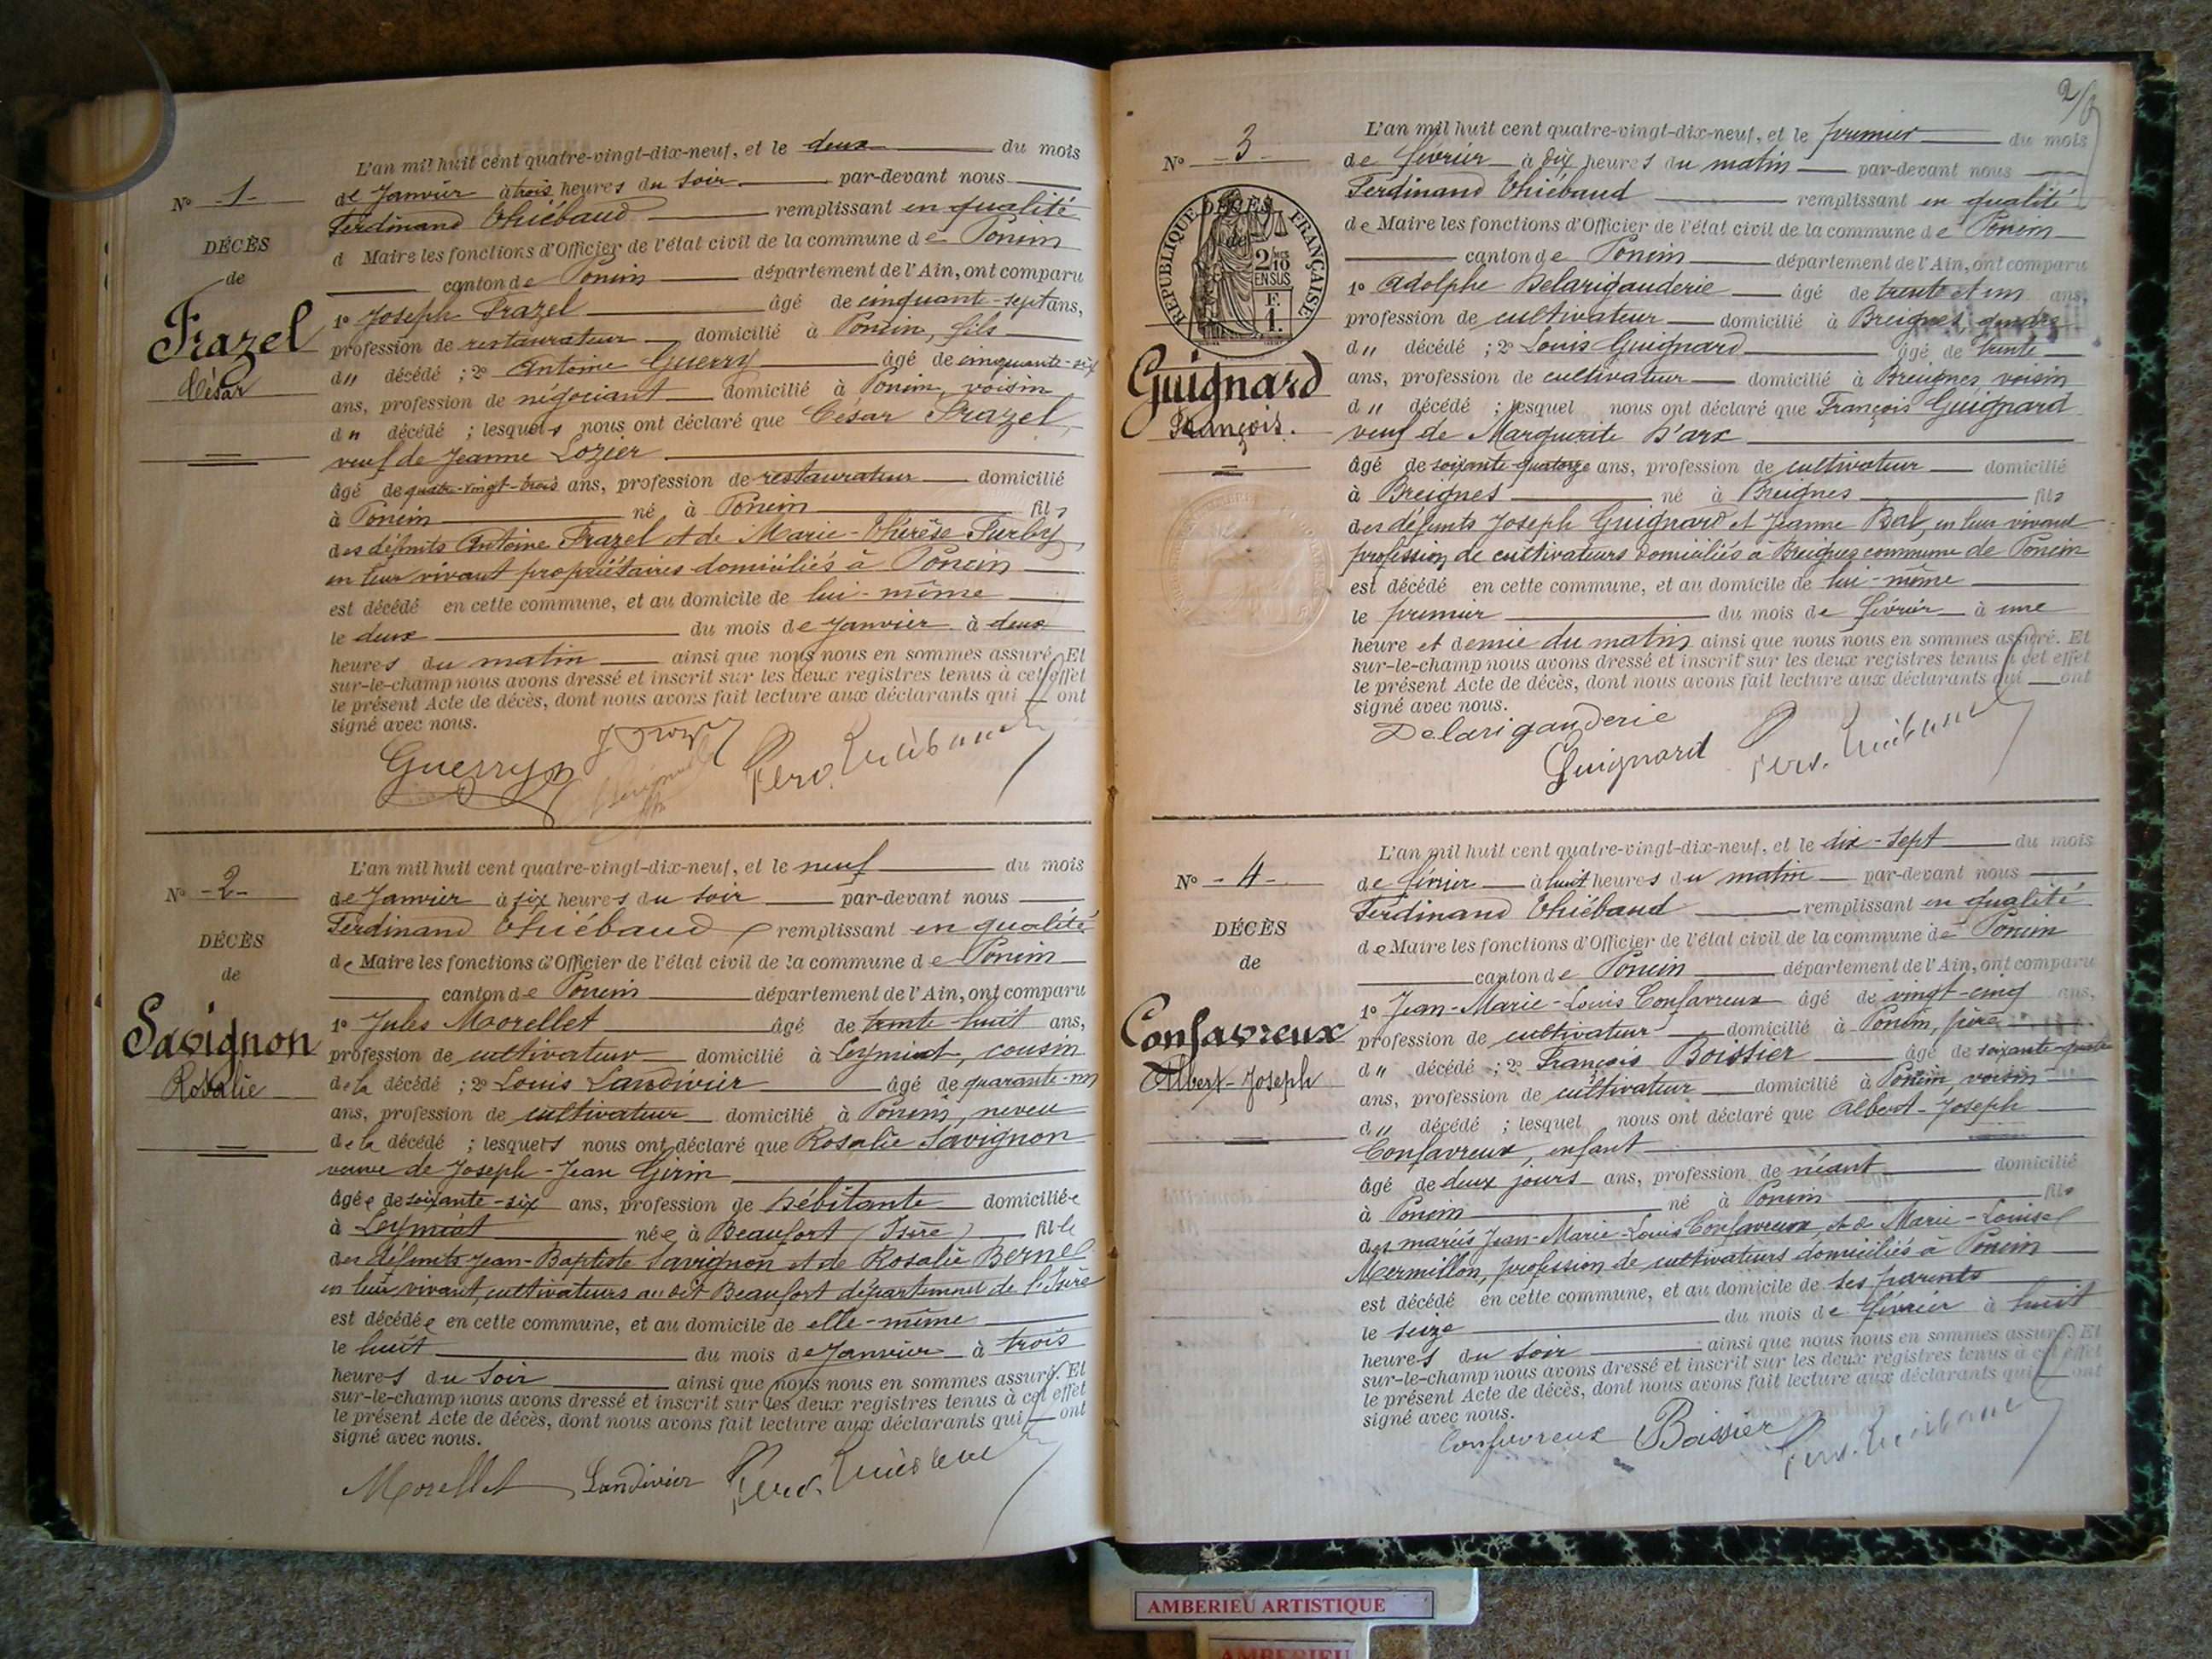 L'an mil huit cent quatre-vingt-dix-neuf, et le deux du mois
de Janvier à trois heures du soir par-devant nous
Ferdinand Thiébaud remplissant en qualité
d Maire les fonctions d'Officier de l'état civil de la commune de Poncin
canton de Poncin département de l'Ain, ont comparu
1° Joseph Frazel âgé de cinquante-sept ans,
profession de restaurateur domicilié à Poncin, fils
d" décédé ; 2° Antoine Guerry âgé de cinquante-six
ans, profession de négociant domicilié à Poncin, voisin
d" décédé ; lesquels nous ont déclaré que César Frazel,
veuf de Jeanne Lozier
âgé de quatre-vingt-trois ans, profession de restaurateur domicilié
à Poncin né à Poncin fils
des défunts Antoine Frazel et de Marie-Thérèse Furby,
en leur vivant propriétaires domiciliés à Poncin
est décédé en cette commune, et au domicile de lui-même
le deux du mois de Janvier à deux
heures du matin ainsi que nous nous en sommes assuré. Et
sur-le-champ nous avons dressé et inscrit sur les deux registres tenus à cet effet
le présent Acte de décès, dont nous avons fait lecture aux déclarants qui ont
signé avec nous.
Guerry Ferd. Thiébaud
N° -1-
DÉCÈS
de
Frazel
César
L'an mil huit cent quatre-vingt-dix-neuf, et le neuf du mois
de Janvier à six heures du soir par-devant nous
Ferdinand Thiébaud remplissant en qualité
de Maire les fonctions d'Officier de l'état civil de la commune de Poncin
canton de Poncin département de l'Ain, ont comparu
1° Jules Morellet âgé de trente huit ans,
profession de cultivateur domicilié à Leymiat, cousin
de la décédé ; 2° Louis Landivier âgé de quarante-un
ans, profession de cultivateur domicilié à Poncin, neveu
de la décédé ; lesquels nous ont déclaré que Rosalie Savignon
veuve de Joseph-Jean Girin
âgée de soixante-six ans, profession de débitante domiciliée
à Leymiat née à Beaufort (Isère) fille
des défunts Jean-Baptiste Savignon et de Rosalie Bernel
en leur vivant, cultivateurs au dit Beaufort département de l'Isère
est décédée en cette commune, et au domicile de elle-même
le huit du mois de Janvier à trois
heures du soir ainsi que nous nous en sommes assuré. Et
sur-le-champ nous avons dressé et inscrit sur les deux registres tenus à cet effet
le présent Acte de décès, dont nous avons fait lecture aux déclarants qui ont
signé avec nous.
Morellet Landivier Ferd. Thiébaud
N° -2-
DÉCÈS
de
Savignon
Rosalie
2
L'an mil huit cent quatre-vingt-dix-neuf, et le premier du mois
de février à dix heures du matin par-devant nous
Ferdinand Thiébaud remplissant en qualité
de Maire les fonctions d'Officier de l'état civil de la commune de Poncin
canton de Poncin département de l'Ain, ont comparu
1° Adolphe Delarigauderie âgé de trente et un ans,
profession de cultivateur domicilié à Breignes, gendre
d" décédé ; 2° Louis Guignard âgé de trente
ans, profession de cultivateur domicilié à Breignes voisin
d" décédé ; lesquel nous ont déclaré que François Guignard
veuf de Marguerite D'arx
âgé de soixante-quatorze ans, profession de cultivateur domicilié
à Breignes né à Breignes fils
des défunts Joseph Guignard et Jeanne Bal, en leur vivant
profession de cultivateurs domiciliés à Breignes commune de Poncin
est décédé en cette commune, et au domicile de lui-même
le premier du mois de février à une
heure et demie du matin ainsi que nous nous en sommes assuré. Et
sur-le-champ nous avons dressé et inscrit sur les deux registres tenus à cet effet
le présent Acte de décès, dont nous avons fait lecture aux déclarants qui ont
signé avec nous.
Delarigauderie
Guignard Ferd. Thiébaud
N° -3-
DÉCÈS
de
RÉPUBLIQUE FRANÇAISE
2/10
EN SUS
F.
1.
Guignard
François.
L'an mil huit cent quatre-vingt-dix-neuf, et le dix-sept du mois
de février à huit heures du matin par-devant nous
Ferdinand Thiébaud remplissant en qualité
de Maire les fonctions d'Officier de l'état civil de la commune de Poncin
canton de Poncin département de l'Ain, ont comparu
1° Jean-Marie-Louis Confavreux âgé de vingt-cinq ans,
profession de cultivateur domicilié à Poncin, père
d" décédé ; 2° François Boissier âgé de soixante-quatre
ans, profession de cultivateur domicilié à Poncin, voisin
d" décédé ; lesquel nous ont déclaré que Albert-Joseph
Confavreux, enfant
âgé de deux jours ans, profession de néant domicilié
à Poncin né à Poncin fils
des mariés Jean-Marie-Louis Confavreux, et de Marie-Louise
Mermillon, profession de cultivateurs domiciliés à Poncin
est décédé en cette commune, et au domicile de ses parents
le seize du mois de février à huit
heures du soir ainsi que nous nous en sommes assuré. Et
sur-le-champ nous avons dressé et inscrit sur les deux registres tenus à cet effet
le présent Acte de décès, dont nous avons fait lecture aux déclarants qui ont
signé avec nous.
Confavreux Boissier Ferd. Thiébaud
N° -4-
DÉCÈS
de
Confavreux
Albert-Joseph
AMBERIEU ARTISTIQUE
AMBERIEU